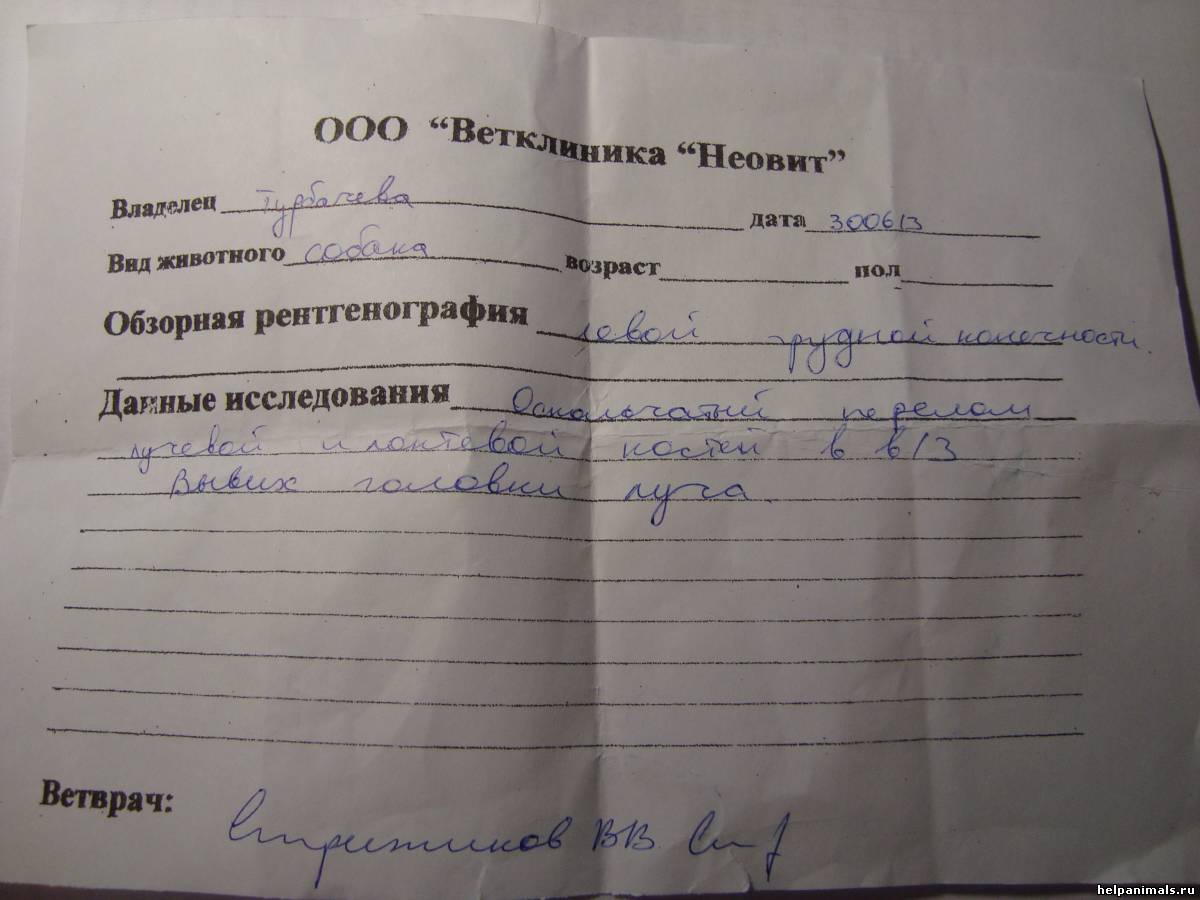 ООО “Ветклиника “Неовит”
Владелец Турбачева дата 300613
Вид животного собака возраст пол
Обзорная рентгенография левой грудной конечности.
Данные исследования Оскольчатый перелом
лучевой и локтевой костей в в/3
Вывих головки луча.
Ветврач: Стрижиков ВВ
helpanimals.ru